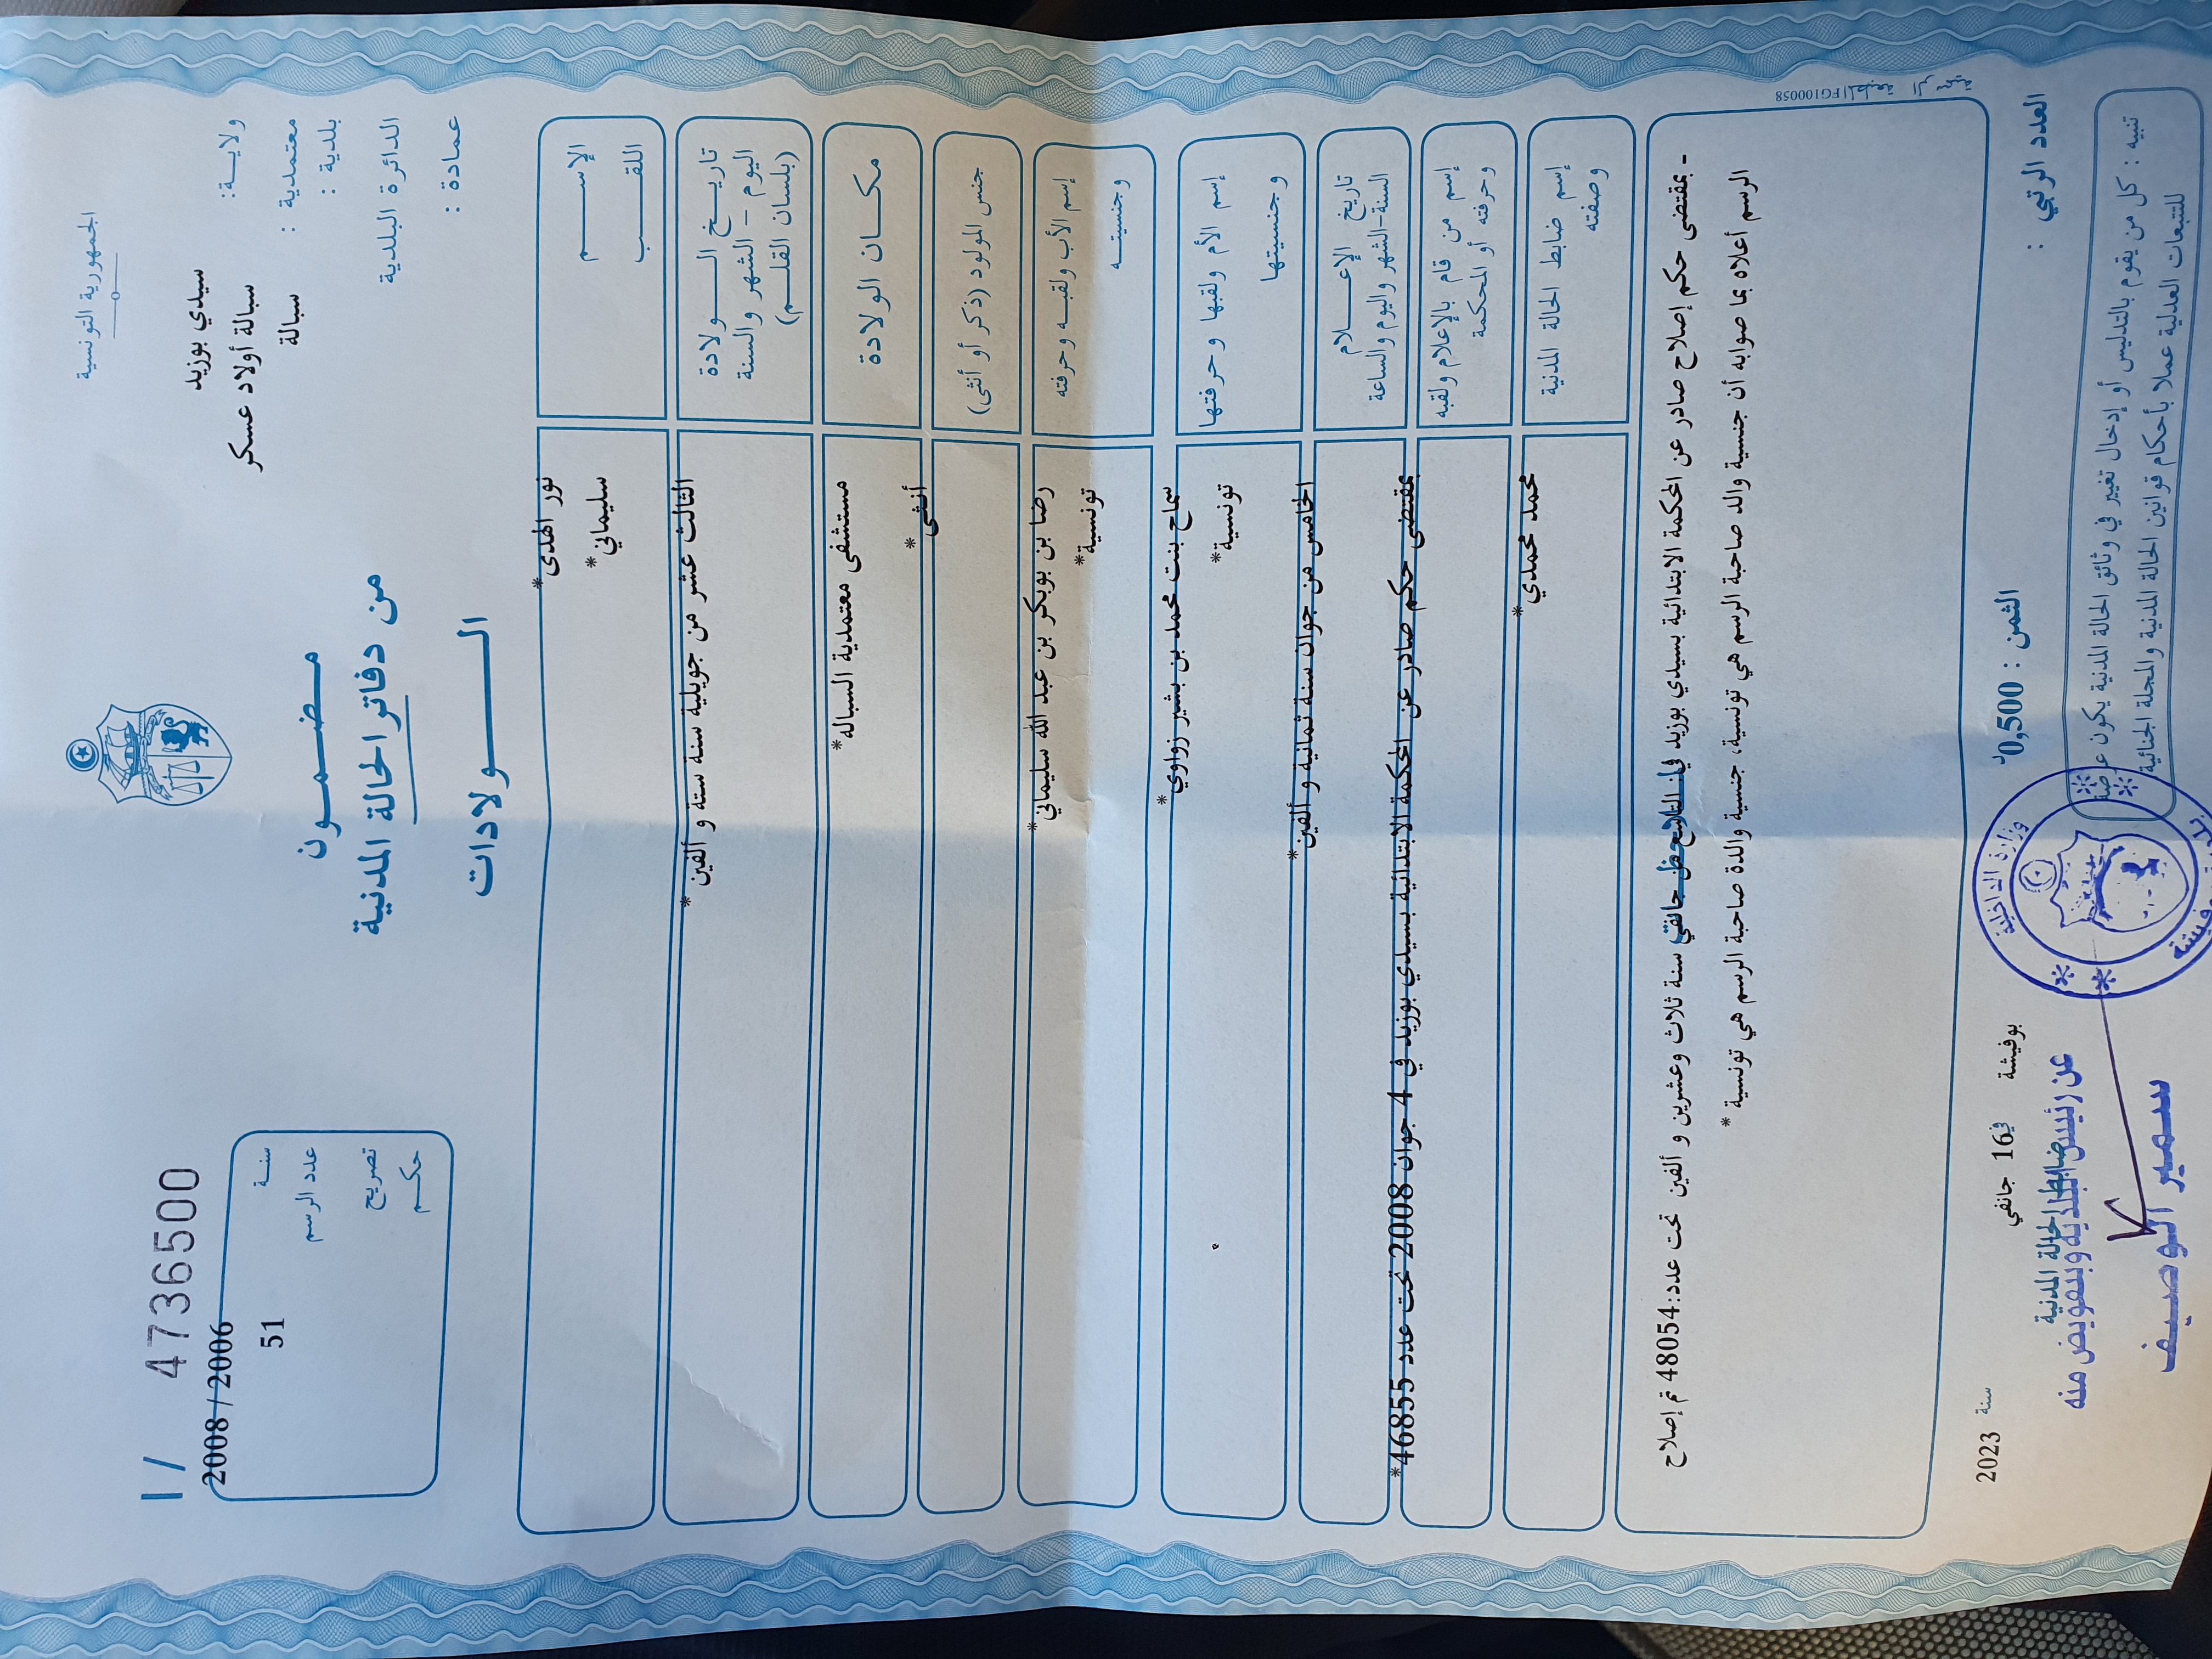 الجمهورية التونسية
I / 4736500
ولايـة: سيدي بوزيد
معتمدية : سبالة أولاد عسكر
بلدية : سبالة
الدائرة البلدية
عمادة :
2008 / 2006
سنـة
عدد الرسم 51
تصريح
حكـم
مضمـون
من دفاتر الحالة المدنية
الـولادات
الإسـم نور الهدى*
اللقـب سليماني*
تاريـخ الـولادة
اليوم - الشهر والسنة
(بلسان القلـم)
الثالث عشر من جويلية سنة ستة و ألفين *
مكـان الولادة
مستشفى معتمدية السبالة*
جنس المولود (ذكر أو أنثى)
أنثى *
إسم الأب ولقبـه وحرفته
رضا بن بوبكر بن عبد الله سليماني*
وجنسيتـه
تونسية*
إسم الأم ولقبها وحرفتها
سماح بنت محمد بن بشير زواوي*
وجنسيتها
تونسية*
تاريخ الإعـلام
السنة-الشهر واليوم والساعة
الخامس من جوان سنة ثمانية و ألفين*
إسم من قام بالإعلام ولقبه
وحرفته أو المحكمة
بمقتضى حكم صادر عن المحكمة الابتدائية بسيدي بوزيد في 4 جوان 2008 تحت عدد 46855*
إسم ضابط الحالة المدنية
وصفته
محمد محمدي*
- بمقتضى حكم إصلاح صادر عن المحكمة الابتدائية بسيدي بوزيد في جانفي سنة ثلاث وعشرين و ألفين تحت عدد:48054 تم إصلاح
الرسم أعلاه بما صوابه أن جنسية والد صاحبة الرسم هي تونسية، جنسية والدة صاحبة الرسم هي تونسية *
FG100058 المطبعة الرسمية
العدد الرتبي :
الثمن : 0,500د
بوفيشة في 16 جانفي سنة 2023
ضابط الحالة المدنية
عن رئيس البلدية وبتفويض منه
سمير الوصيف
وزارة الداخلية
تنبيه : كل من يقوم بالتدليس أو إدخال تغيير في وثائق الحالة المدنية يكون عرضة
للتتبعات العدلية عملا بأحكام قوانين الحالة المدنية والمجلة الجنائية